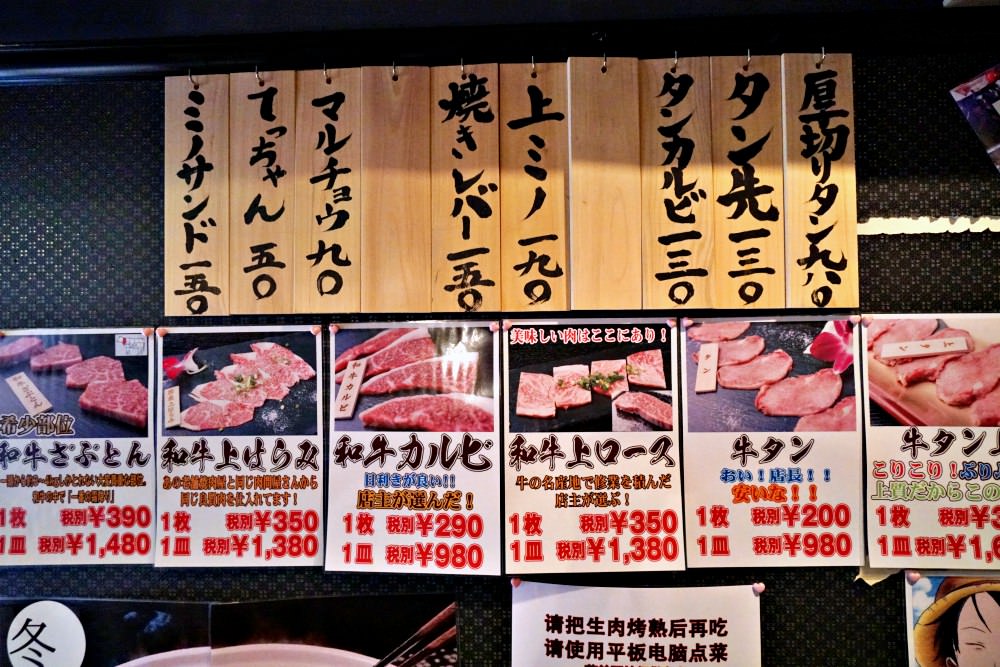 厚切りタン 一八〇
タン先 一三〇
タンカルビ 一三〇
上ミノ 一九〇
焼きレバー 一五〇
マルチョウ 九〇
てっちゃん 五〇
ミノサンド 一五〇
希少部位
和牛ざぶとん
1枚 税別¥390
1皿 税別¥1,480
和牛上はらみ
あの名舗焼肉屋と同じ肉問屋さんから
同じ良質肉を仕入れてます!
1枚 税別¥350
1皿 税別¥1,380
和牛カルビ
和牛カルビ
目利きが良い!!
店主が選んだ!
1枚 税別¥290
1皿 税別¥980
美味しい肉はここにあり!
和牛上ロース
牛の名産地で修業を積んだ
店主が選ぶ!
1枚 税別¥350
1皿 税別¥1,380
タン
牛タン
おい!店長!!
安いな!!
1枚 税別¥200
1皿 税別¥980
上タン
牛タン上
こりこり!ぷり
上質だからこの
1枚 税別¥3
1皿 税別¥1,
冬
请把生肉烤熟后再吃
请使用平板电脑点菜